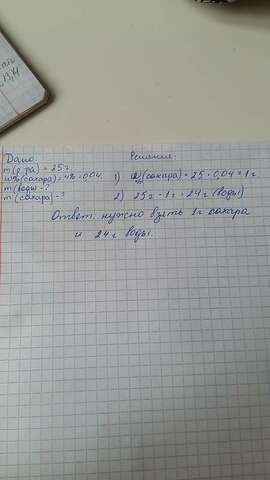 Дано
Решение
m(р-ра) = 25г
w%(сахара) = 4% = 0.04
m(воды) - ?
m(сахара) - ?
1) m(сахара) = 25 · 0,04 = 1г
2) 25г - 1г = 24г (воды)
Ответ: нужно взять 1г сахара
и 24г воды.